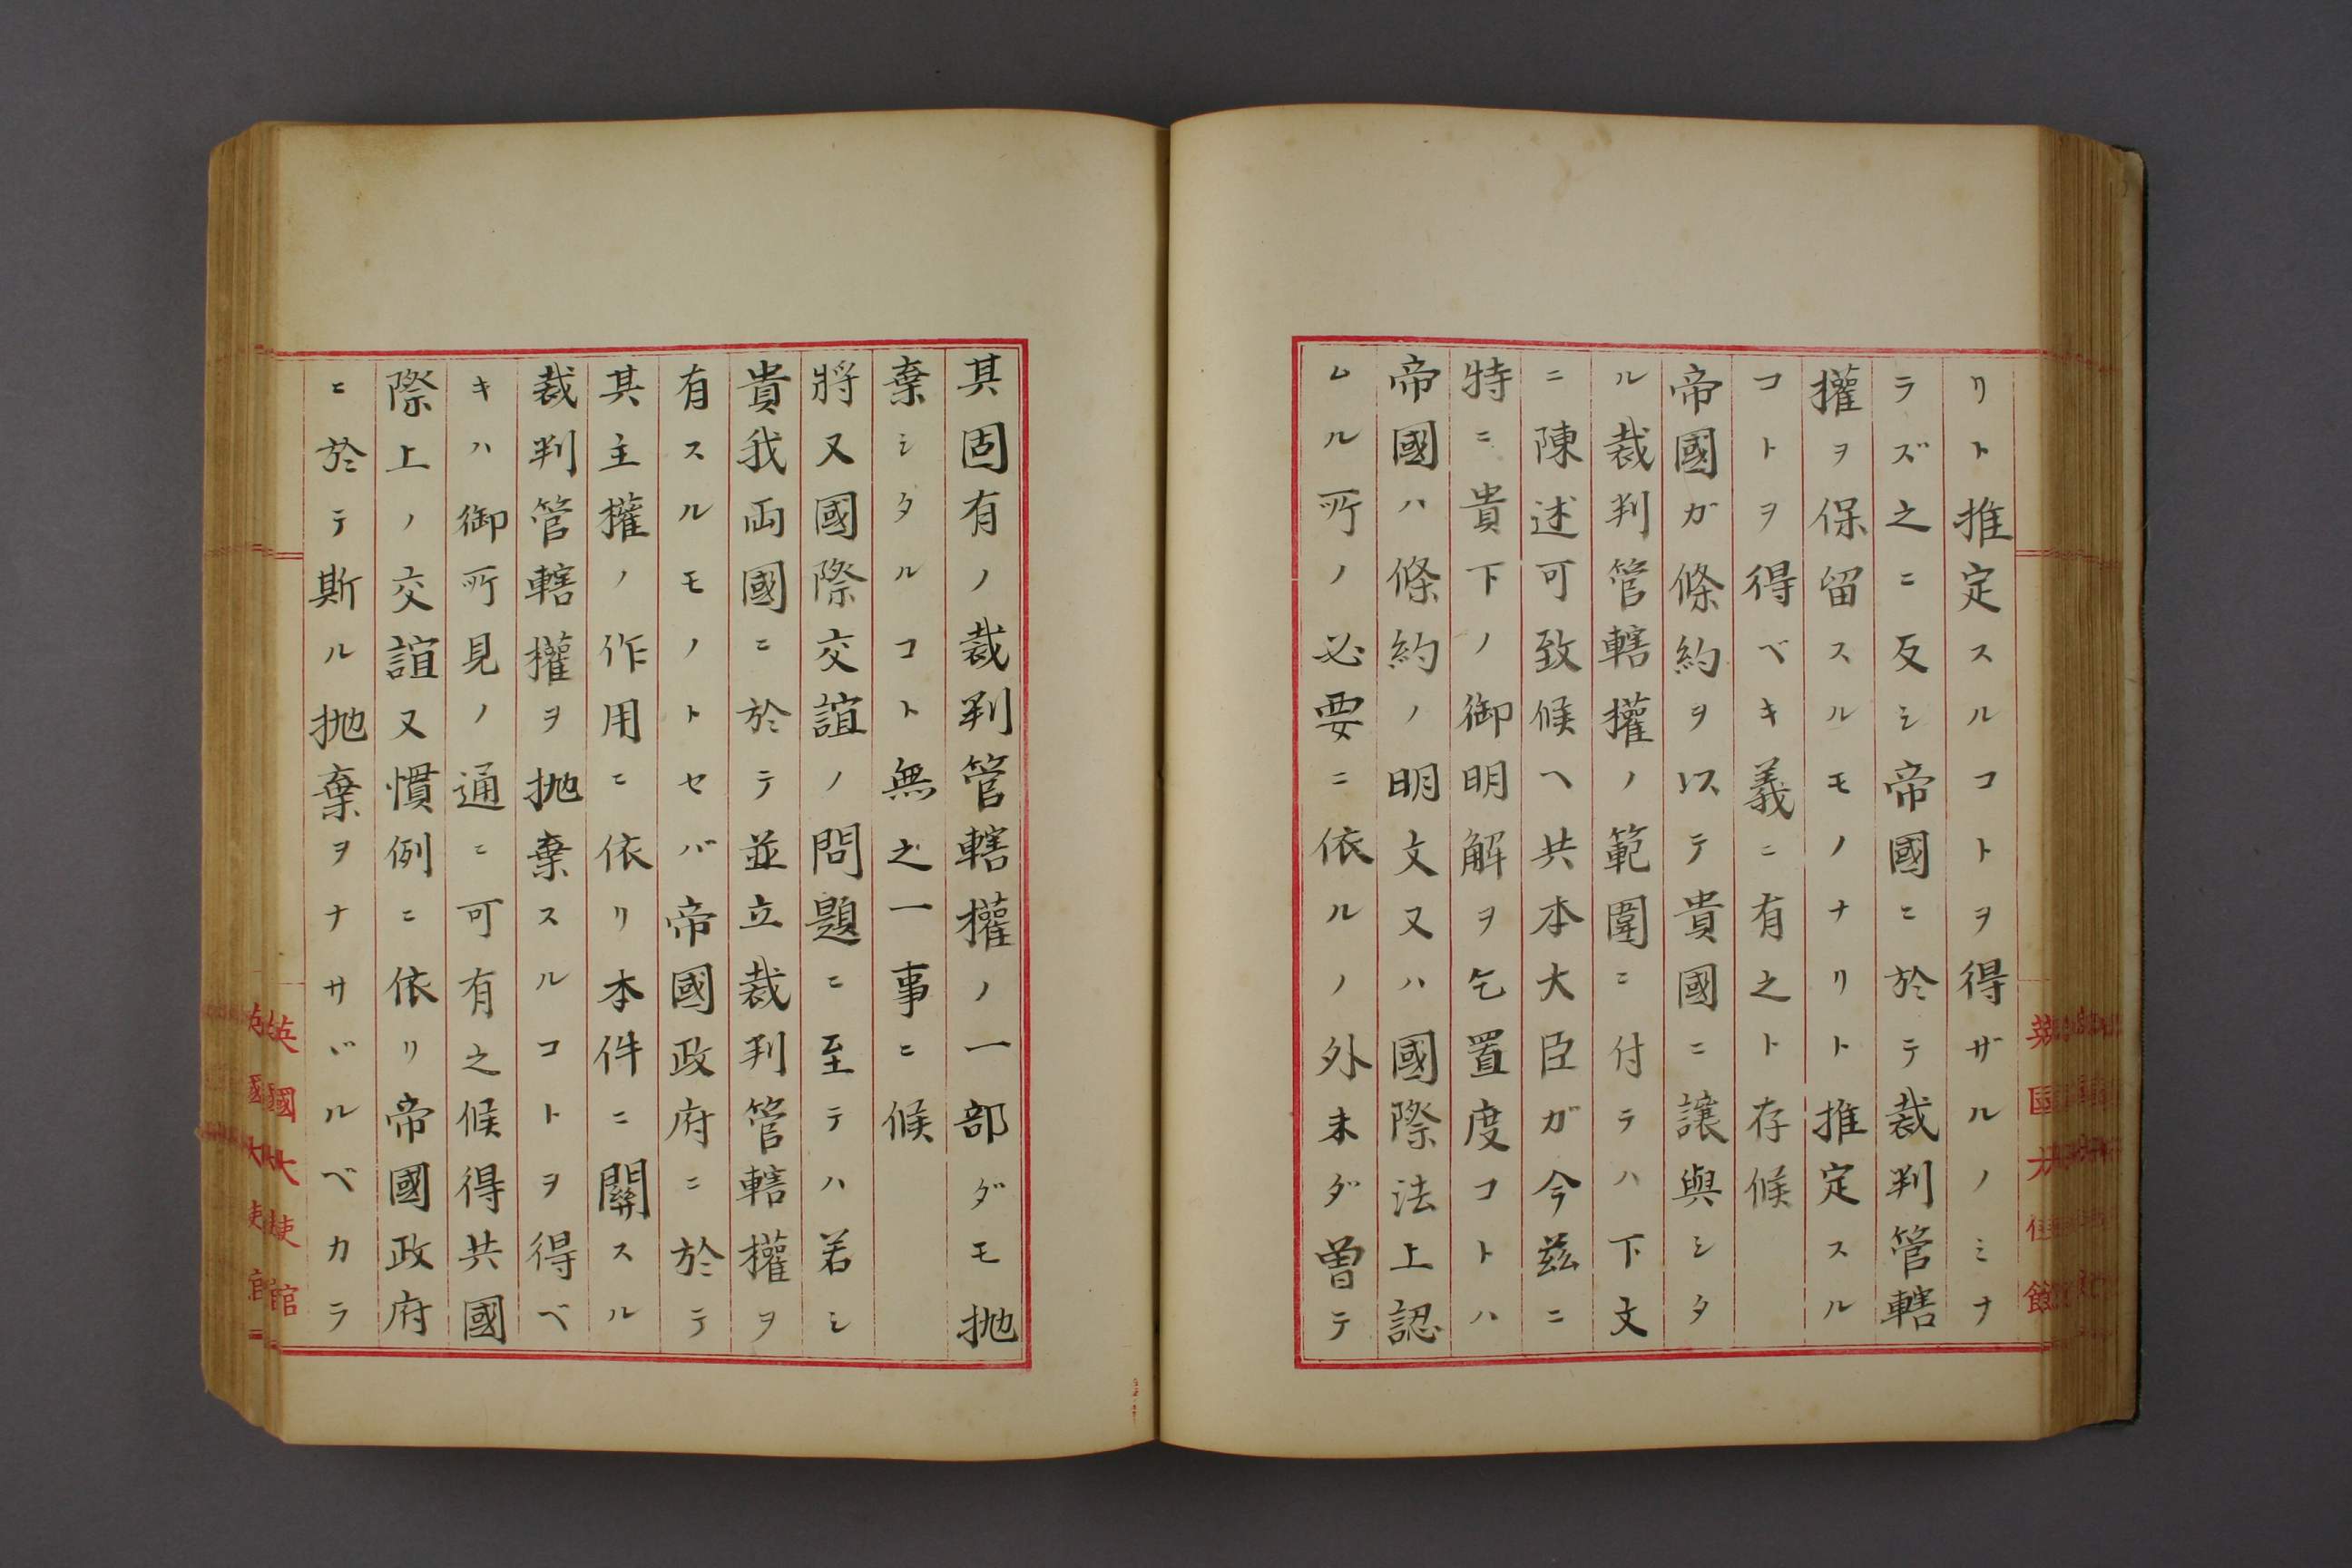 リト推定スルコトヲ得ザルノミナ
ラズ之ニ反シ帝國ニ於テ裁判管轄
權ヲ保留スルモノナリト推定スル
コトヲ得ベキ義ニ有之ト存候
帝國ガ條約ヲ以テ貴國ニ讓與シタ
ル裁判管轄權ノ範圍ニ付テハ下文
ニ陳述可致候ヘ共本大臣ガ今茲ニ
特ニ貴下ノ御明解ヲ乞置度コトハ
帝國ハ條約ノ明文又ハ國際法上認
ムル所ノ必要ニ依ルノ外未ダ曽テ
其固有ノ裁判管轄權ノ一部ダモ抛
棄シタルコト無之一事ニ候
將又國際交誼ノ問題ニ至テハ若シ
貴我両國ニ於テ並立裁判管轄權ヲ
有スルモノトセバ帝國政府ニ於テ
其主權ノ作用ニ依リ本件ニ關スル
裁判管轄權ヲ抛棄スルコトヲ得ベ
キハ御所見ノ通ニ可有之候得共國
際上ノ交誼又慣例ニ依リ帝國政府
ニ於テ斯ル抛棄ヲナサヾルベカラ
英國大使館